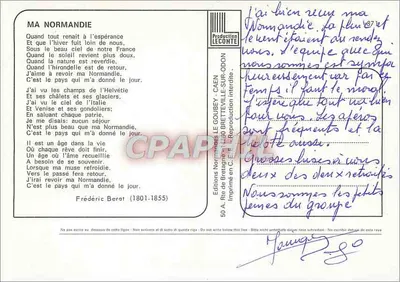 MA NORMANDIE
Quand tout renaît à l'espérance
Et que l'hiver fuit loin de nous,
Sous le beau ciel de notre France
Quand le soleil revient plus doux,
Quand la nature est reverdie,
Quand l'hirondelle est de retour,
J'aime à revoir ma Normandie,
C'est le pays qui m'a donné le jour.
J'ai vu les champs de l'Helvétie
Et ses châlets et ses glaciers.
J'ai vu le ciel de l'Italie
Et Venise et ses gondoliers,
En saluant chaque patrie.
Je me disais: aucun séjour
N'est plus beau que ma Normandie,
C'est le pays qui m'a donné le jour.
Il est un âge dans la vie
Où chaque rêve doit finir,
Un âge où l'âme recueillie
A besoin de se souvenir.
Lorsque ma muse refroidie
Vers le passé fera retour,
J'irai revoir ma Normandie,
C'est le pays qui m'a donné le jour.
Frédéric Berat (1801-1855)
Production
LECONTE
Editions Normandes LE GOUBEY - CAEN
50 A, Rue de Bretagne - BRETTEVILLE-SUR-ODON
Imprimé en C.E.E. - Reproduction interdite
J'ai bien revu ma
Normandie. La pluie et
le vent étaient au rendez
vous. L'équipe avec qui
nous sommes est sympa
heureusement car par ce
temps il faut le moral
J'espère que tout va bien
pour vous. Les apéros
sont fréquents et la
belote aussi.
Grosses bises à vous
deux des deux retraités
Nous sommes les petits
jeunes du groupe